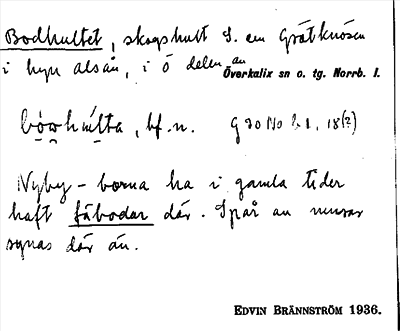 Bodhultet, skogshult S. om Gråtknösen
i byn alsån, i ö delen av
Överkalix sn o. tg. Norrb. l.
bf. n. 18(?)
Nyby-borna ha i gamla tider
haft fäbodar där. Spår av murar
synas där än.
EDVIN BRÄNNSTRÖM 1936.